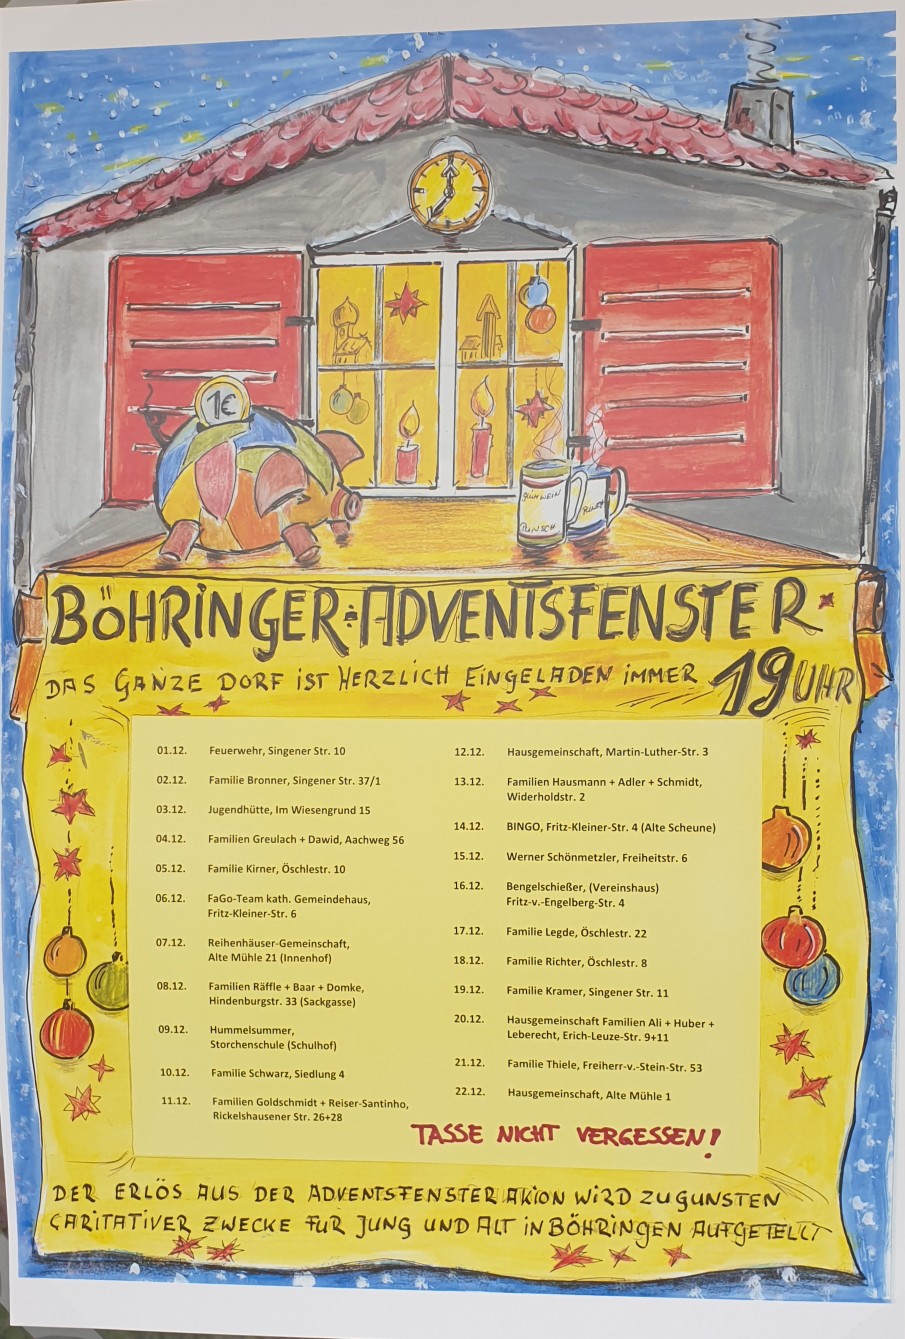 1€
GLÜHWEIN
PUNSCH
BÖHRINGER ADVENTSFENSTER
DAS GANZE DORF IST HERZLICH EINGELADEN IMMER 19 UHR
01.12. Feuerwehr, Singener Str. 10
02.12. Familie Bronner, Singener Str. 37/1
03.12. Jugendhütte, Im Wiesengrund 15
04.12. Familien Greulach + Dawid, Aachweg 56
05.12. Familie Kirner, Öschlestr. 10
06.12. FaGo-Team kath. Gemeindehaus,
Fritz-Kleiner-Str. 6
07.12. Reihenhäuser-Gemeinschaft,
Alte Mühle 21 (Innenhof)
08.12. Familien Räffle + Baar + Domke,
Hindenburgstr. 33 (Sackgasse)
09.12. Hummelsummer,
Storchenschule (Schulhof)
10.12. Familie Schwarz, Siedlung 4
11.12. Familien Goldschmidt + Reiser-Santinho,
Rickelshausener Str. 26+28
12.12. Hausgemeinschaft, Martin-Luther-Str. 3
13.12. Familien Hausmann + Adler + Schmidt,
Widerholdstr. 2
14.12. BINGO, Fritz-Kleiner-Str. 4 (Alte Scheune)
15.12. Werner Schönmetzler, Freiheitstr. 6
16.12. Bengelschießer, (Vereinshaus)
Fritz-v.-Engelberg-Str. 4
17.12. Familie Legde, Öschlestr. 22
18.12. Familie Richter, Öschlestr. 8
19.12. Familie Kramer, Singener Str. 11
20.12. Hausgemeinschaft Familien Ali + Huber +
Leberecht, Erich-Leuze-Str. 9+11
21.12. Familie Thiele, Freiherr-v.-Stein-Str. 53
22.12. Hausgemeinschaft, Alte Mühle 1
TASSE NICHT VERGESSEN!
DER ERLÖS AUS DER ADVENTSFENSTER AKION WIRD ZUGUNSTEN
CARITATIVER ZWECKE FÜR JUNG UND ALT IN BÖHRINGEN AUFGETEILT